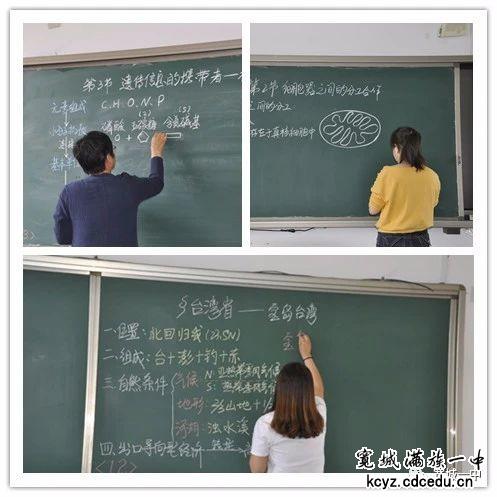 第3节 遗传信息的携带者一
元素组成
C.H.O.N.P
(3)
(5)
磷酸 五碳糖 含氮碱基
+
+
第2节 细胞器之间的分工合作
之间的分工
存在于真核细胞中
§台湾省——宝岛台湾
一.位置:北回归线(23.5N)
宝
二.组成:台+澎+钓+赤
三.自然条件
气候
N:亚热带季风气候
S:热带季风气候
地形:2/3山地+1/
河湖:浊水溪
四.出口导向型经济
<12>
宽城一中
宽城满族一中
kcyz.cdcedu.cn